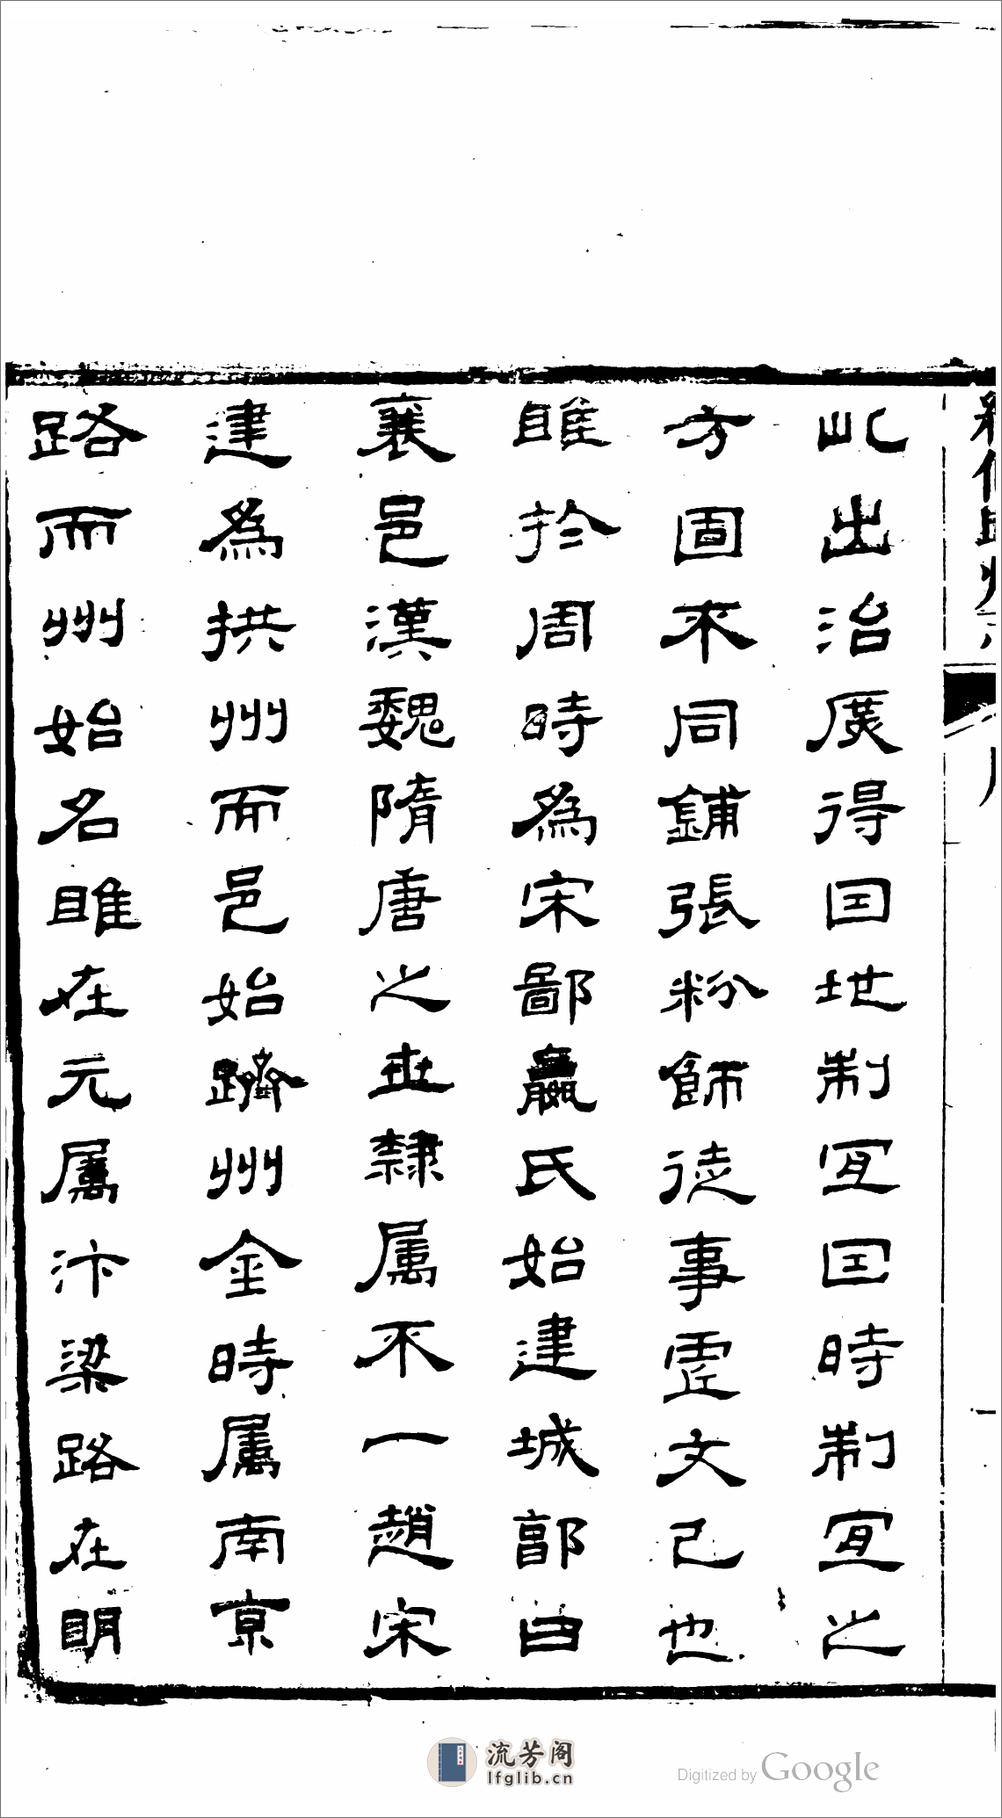 此出治庪得囯地制冝囯時制冝之
方固不同鋪張粉飾徒事虛文已也
睢於周時為宋鄙嬴氏始建城郭曰
襄邑漢魏隋唐之世隸屬不一趙宋
建為拱州而邑始躋州金時屬南京
路而州始名睢在元屬汴梁路在明
流芳阁
lfglib.cn
Digitized by Google